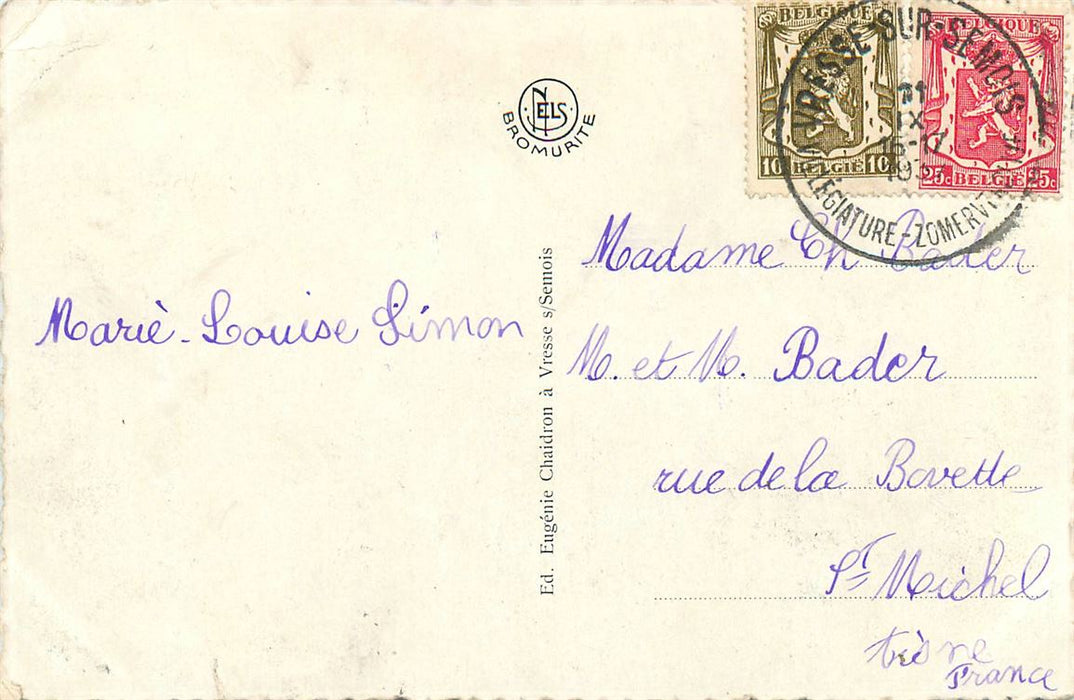 NELS
BROMURITE
BELGIQUE
10 BELGIE 10
BELGIQUE
25c BELGIE 25c
VRESSE-SUR-SEMOIS
VILLEGIATURE-ZOMERV
Marie-Louise Simon
Ed. Eugénie Chaidron à Vresse s/Semois
Madame Ch Bader
M. et M. Bader
rue de la Bovette
St Michel
France